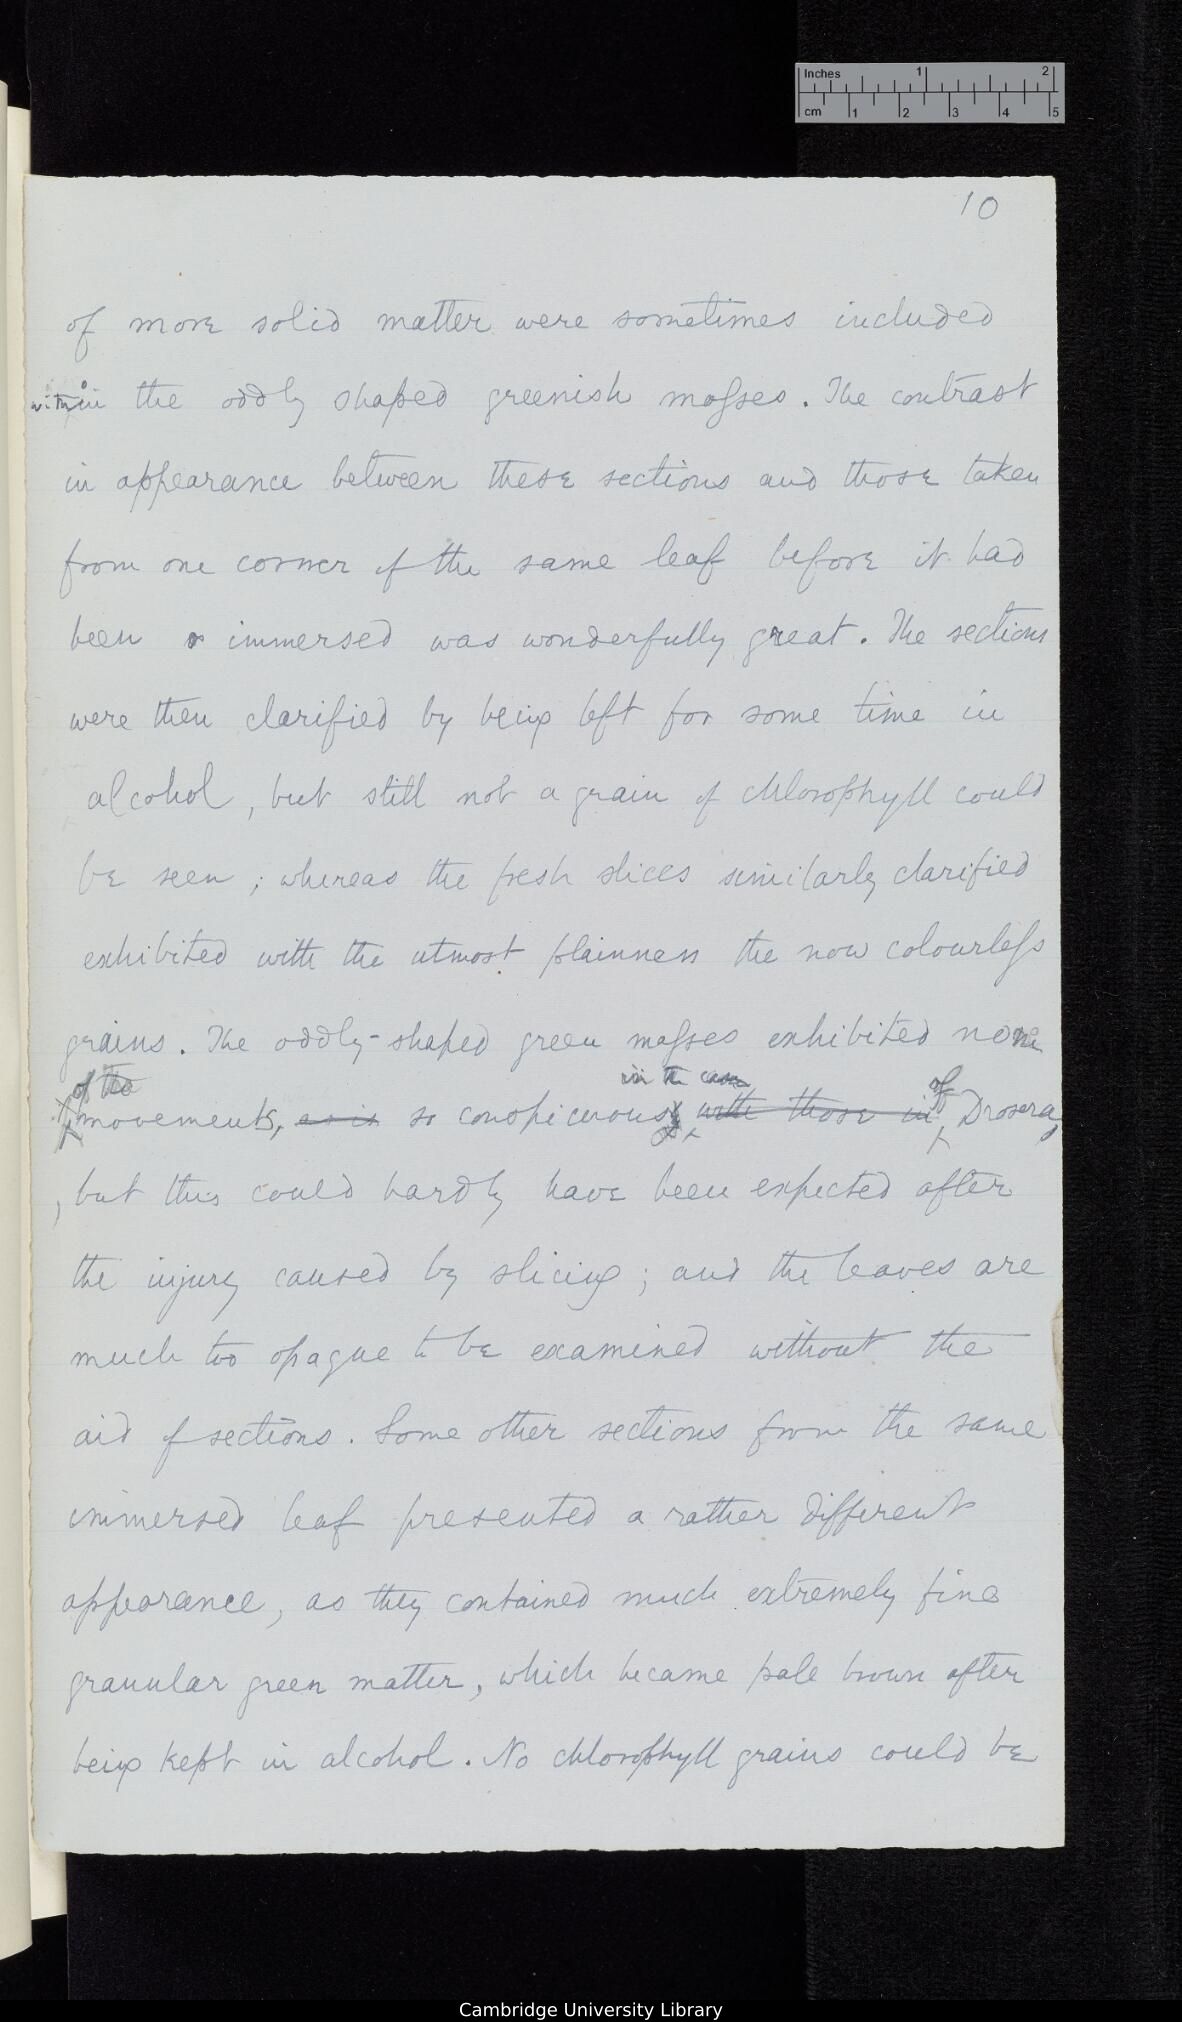 Inches 1 2
cm 1 2 3 4 5
10
of more solid matter were sometimes included
within the oddly shaped greenish masses. The contrast
in appearance between these sections and those taken
from one corner of the same leaf before it had
been immersed was wonderfully great. The sections
were then clarified by being left for some time in
alcohol, but still not a grain of chlorophyll could
be seen; whereas the fresh slices similarly clarified
exhibited with the utmost plainness the now colourless
grains. The oddly-shaped green masses exhibited none
of the in the case of
movements, as is so conspicuous, with those in Drosera,
, but this could hardly have been expected after
the injury caused by slicing; and the leaves are
much too opaque to be examined without the
aid of sections. Some other sections from the same
immersed leaf presented a rather different
appearance, as they contained much extremely fine
granular green matter, which became pale brown after
being kept in alcohol. No chlorophyll grains could be
Cambridge University Library